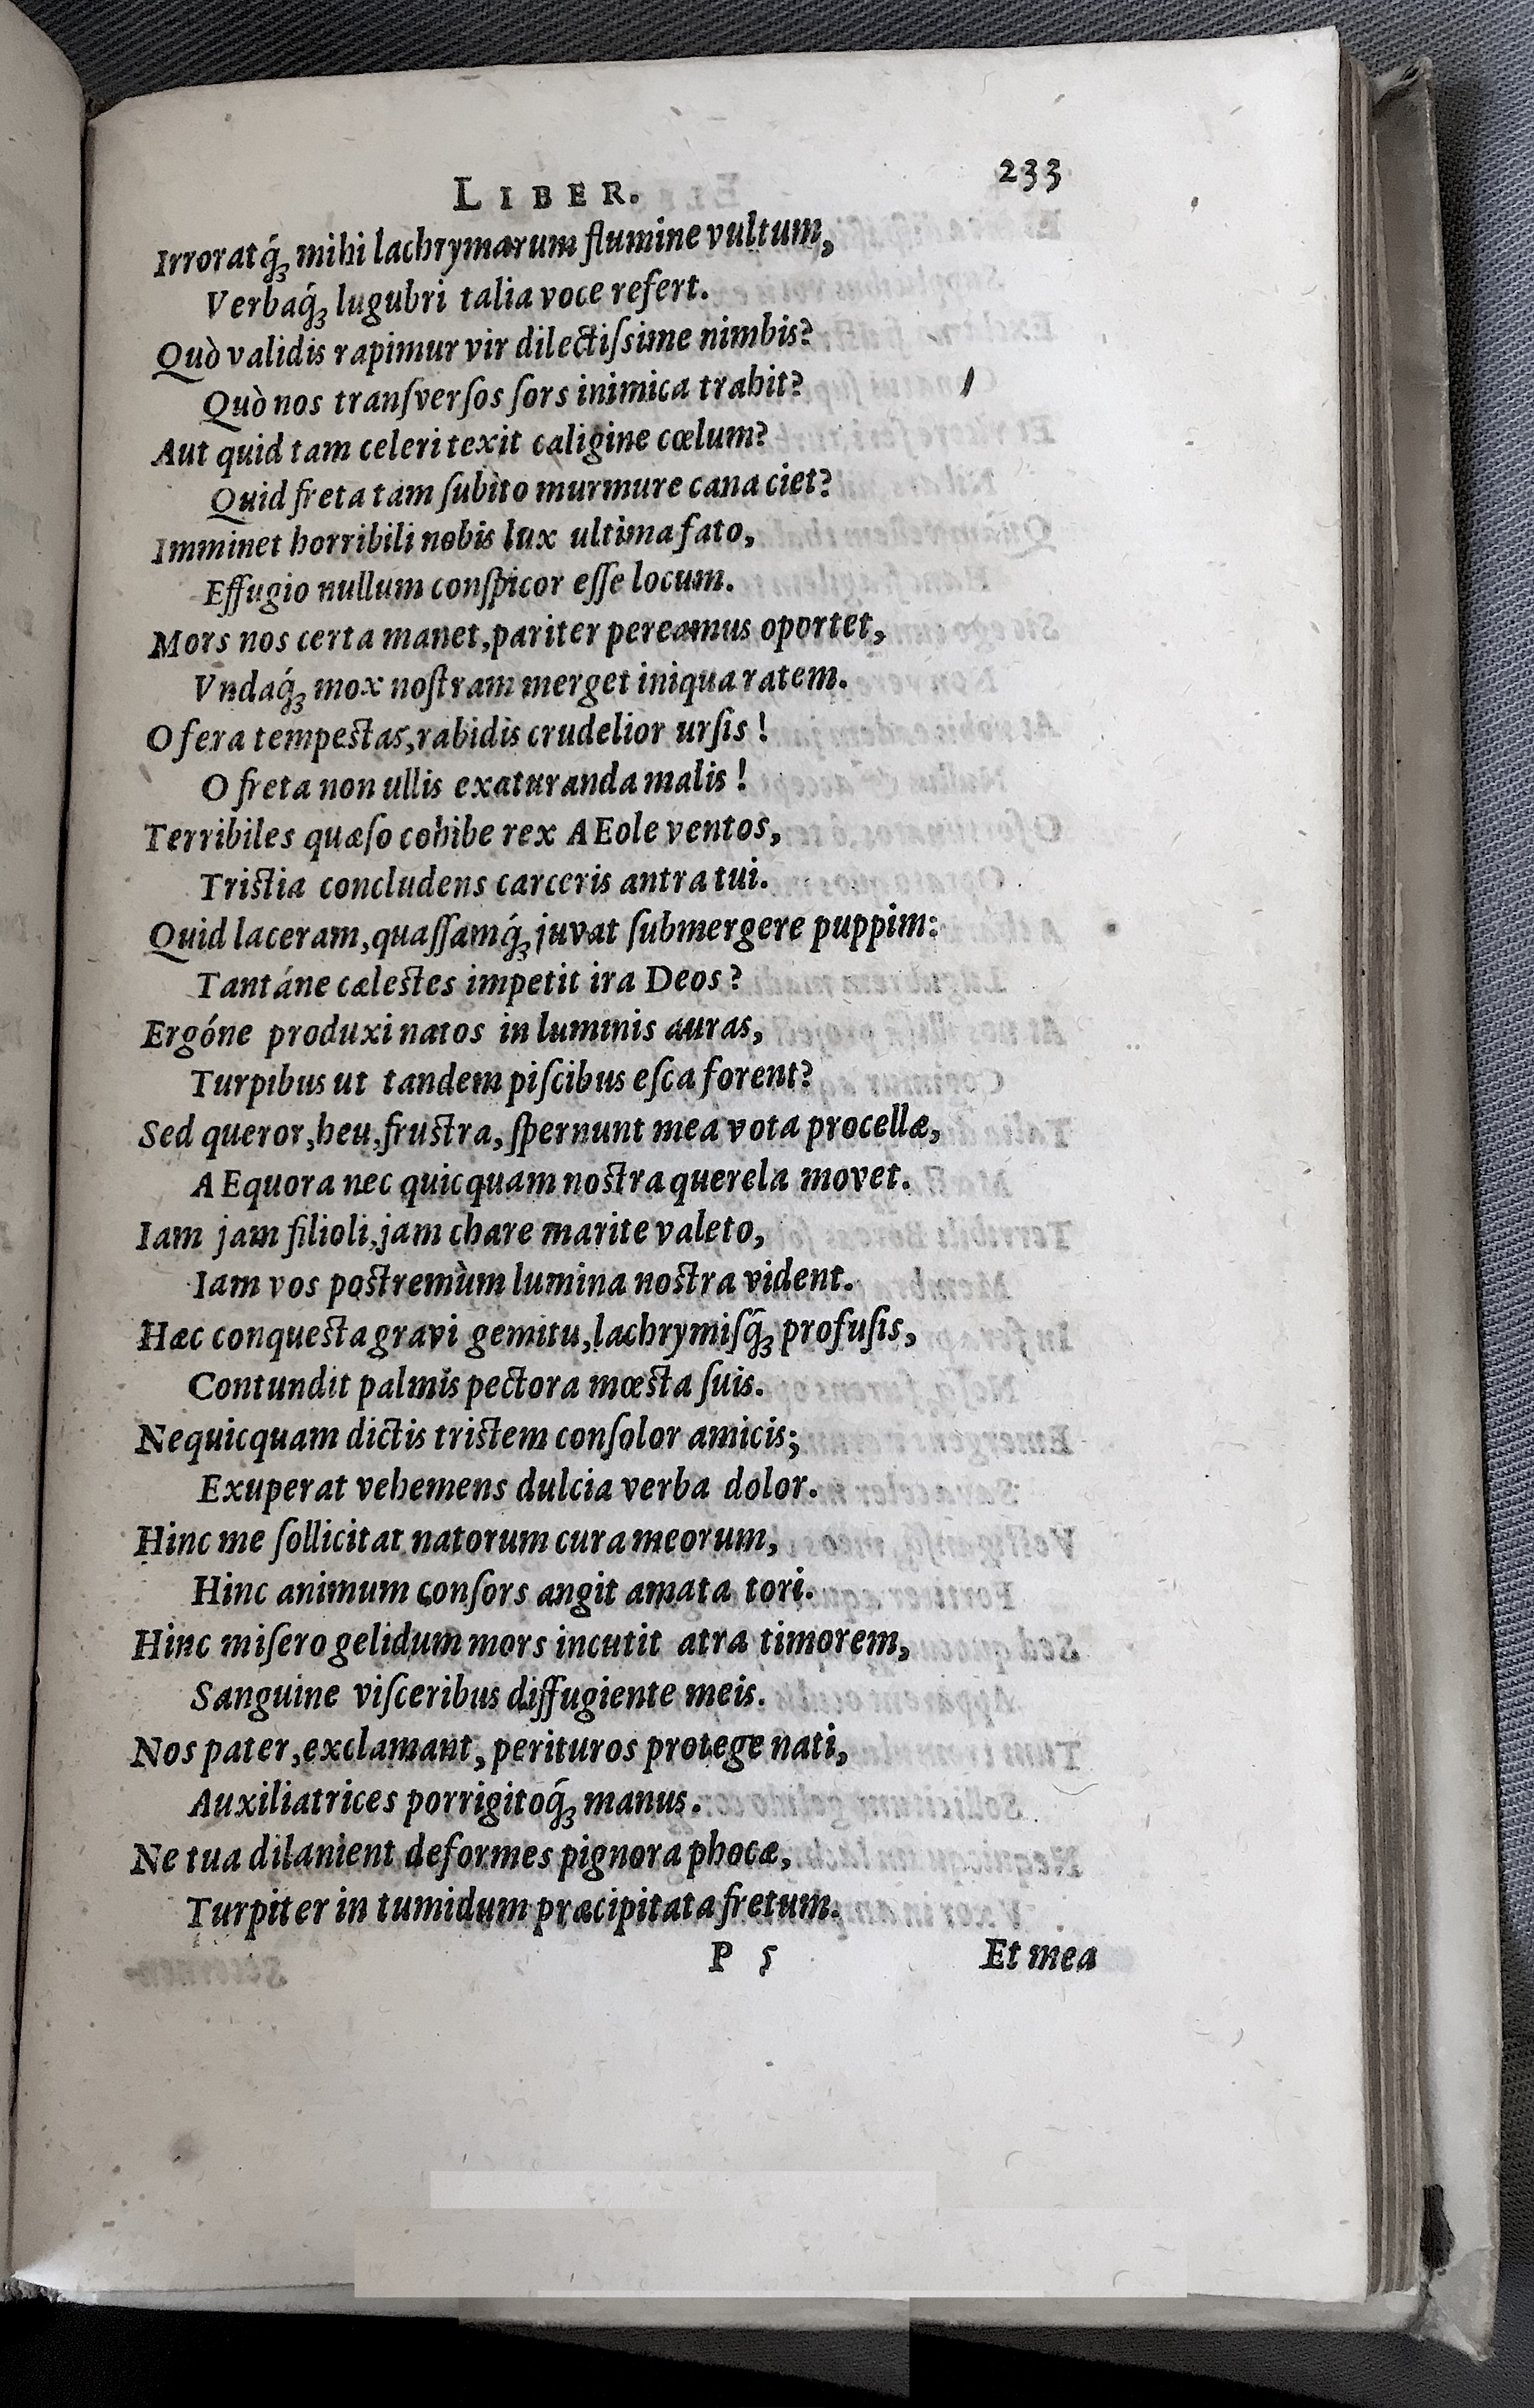 LIBER. 233
Irroratq́; mihi lachrymarum flumine vultum,
Verbaq́; lugubri talia voce refert.
Quò validis rapimur vir dilectiſsime nimbis?
Quò nos tranſverſos ſors inimica trahit?
Aut quid tam celeri texit caligine cœlum?
Quid freta tam ſubito murmure cana ciet?
Imminet horribili nobis lux ultima fato,
Effugio nullum conſpicor eſſe locum.
Mors nos certa manet, pariter pereamus oportet,
Vndaq́; mox noſtram merget iniqua ratem.
O fera tempestas, rabidis crudelior urſis!
O freta non ullis exaturanda malis!
Terribiles quæſo cohibe rex AEole ventos,
Tristia concludens carceris antra tui.
Quid laceram, quaſſamq́; juvat ſubmergere puppim:
Tantáne cælestes impetit ira Deos?
Ergóne produxi natos in luminis auras,
Turpibus ut tandem piſcibus eſca forent?
Sed queror, heu, frustra, ſpernunt mea vota procellæ,
AEquora nec quicquam nostra querela movet.
Iam jam filioli, jam chare marite valeto,
Iam vos postremùm lumina nostra vident.
Hæc conquesta gravi gemitu, lachrymiſq́; profuſis,
Contundit palmis pectora mœsta ſuis.
Nequicquam dictis tristem conſolor amicis;
Exuperat vehemens dulcia verba dolor.
Hinc me ſollicitat natorum cura meorum,
Hinc animum conſors angit amata tori.
Hinc miſero gelidum mors incutit atra timorem,
Sanguine viſceribus diffugiente meis.
Nos pater, exclamant, perituros protege nati,
Auxiliatrices porrigitoq́; manus.
Ne tua dilanient deformes pignora phocæ,
Turpiter in tumidum præcipitata fretum.
P 5 Et mea